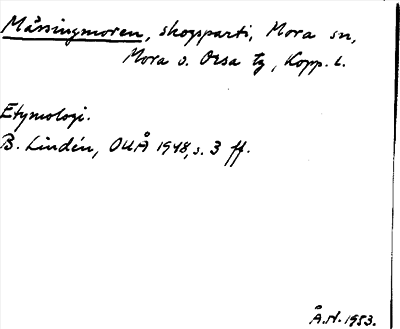 Mässingmoren, skogsparti, Mora sn,
Mora o. Orsa tg, Kopp. l.
Etymologi.
B. Lindén, OUÅ 1948, s. 3 ff.
Å.N. 1953.